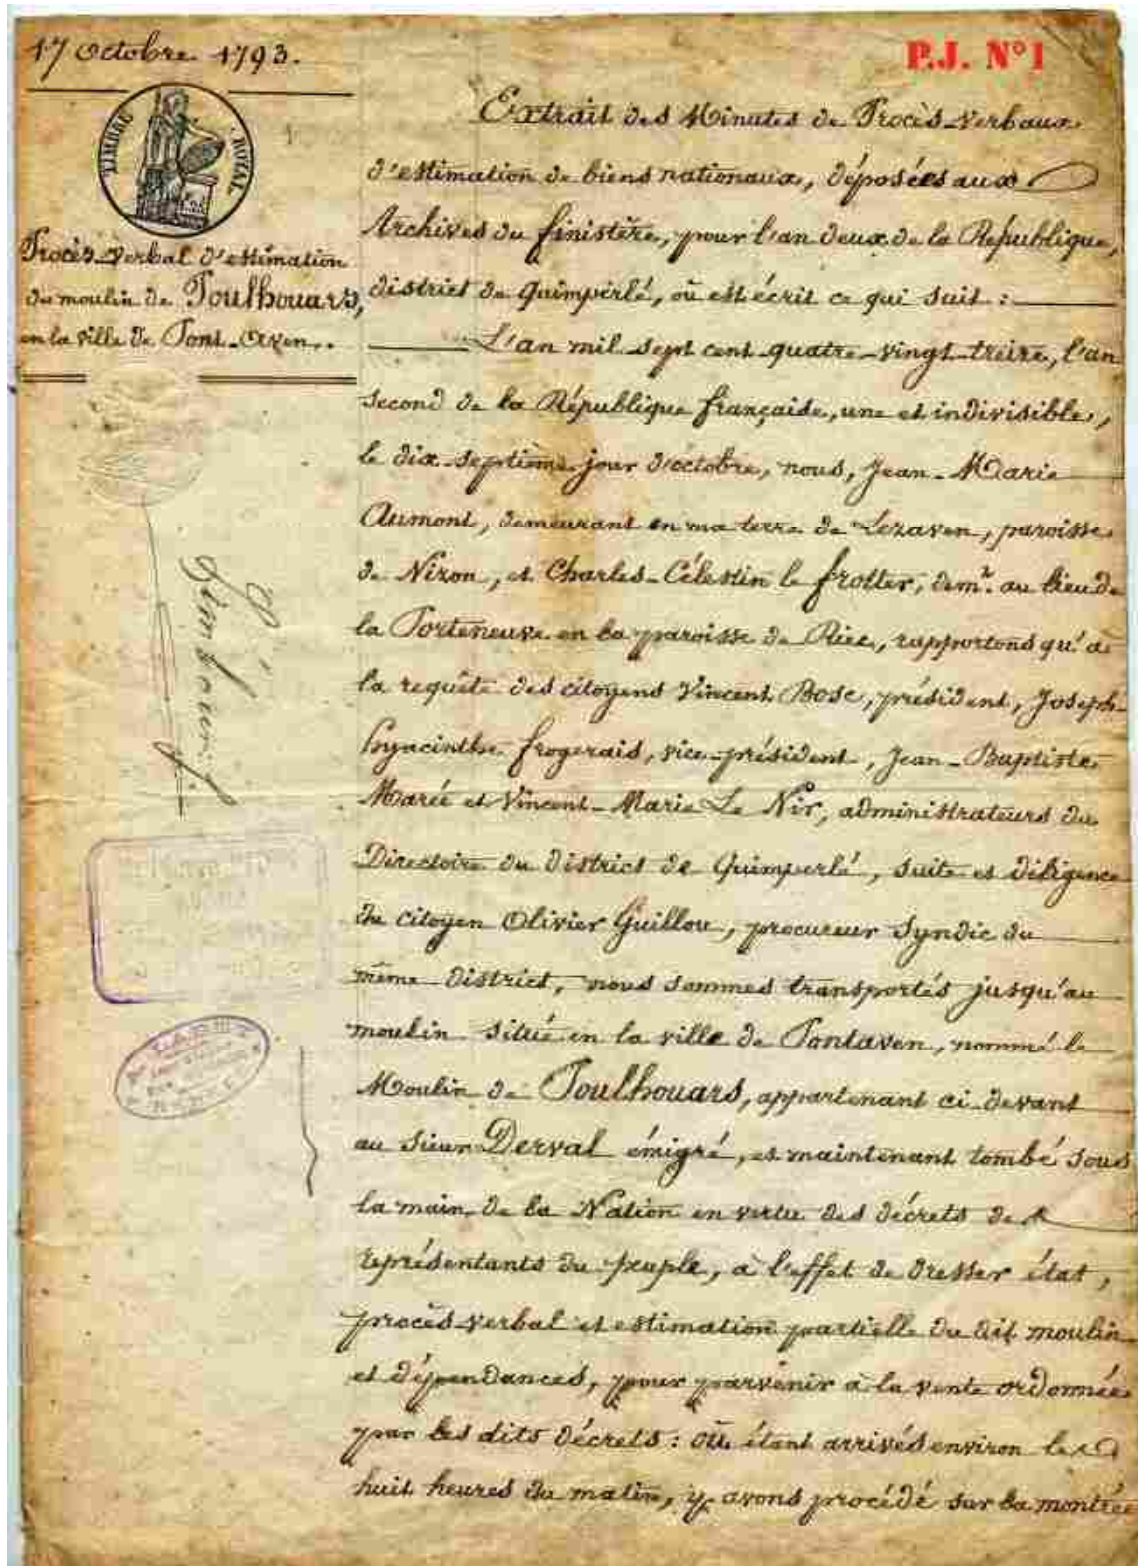 17 Octobre 1793.
P.J. N°1
TIMBRE ROYAL
Procès-verbal d'estimation
du moulin de Poulhouars,
en la ville de Pont-Aven..
Extrait des Minutes de Procès-verbaux
d'estimation de biens nationaux, déposées aux
Archives du finistère, pour l'an deux de la République,
district de Quimperlé, où est écrit ce qui suit :
L'an mil sept cent quatre-vingt-treize, l'an
second de la République française, une et indivisible,
le dix-septième jour d'octobre, nous, Jean-Marie
Aumont, demeurant en ma terre de Lezaven, paroisse
de Nizon, et Charles-Célestin le frotter, demt. au lieu de
la Porteneuve en la paroisse de Riec, rapportons qu'à
la requête des citoyens Vincent Bosc, président, Joseph-
hyacinthe frogerais, vice-président, Jean-Baptiste
Marée et Vincent-Marie Le Nir, administrateurs du
Directoire du district de Quimperlé, suite et diligence
du citoyen Olivier Guillou, procureur syndic du
même district, nous sommes transportés jusqu'au
moulin situé en la ville de Pontaven, nommé le
Moulin de Poulhouars, appartenant ci-devant
au sieur Derval émigré, et maintenant tombé sous
la main de la Nation en vertu des décrets de
représentants du peuple, à l'effet de dresser état,
procès-verbal et estimation partielle du dit moulin
et dépendances, pour parvenir à la vente ordonnée
par les dits décrets : où étant arrivés environ les
huit heures du matin, y avons procédé sur la montrée